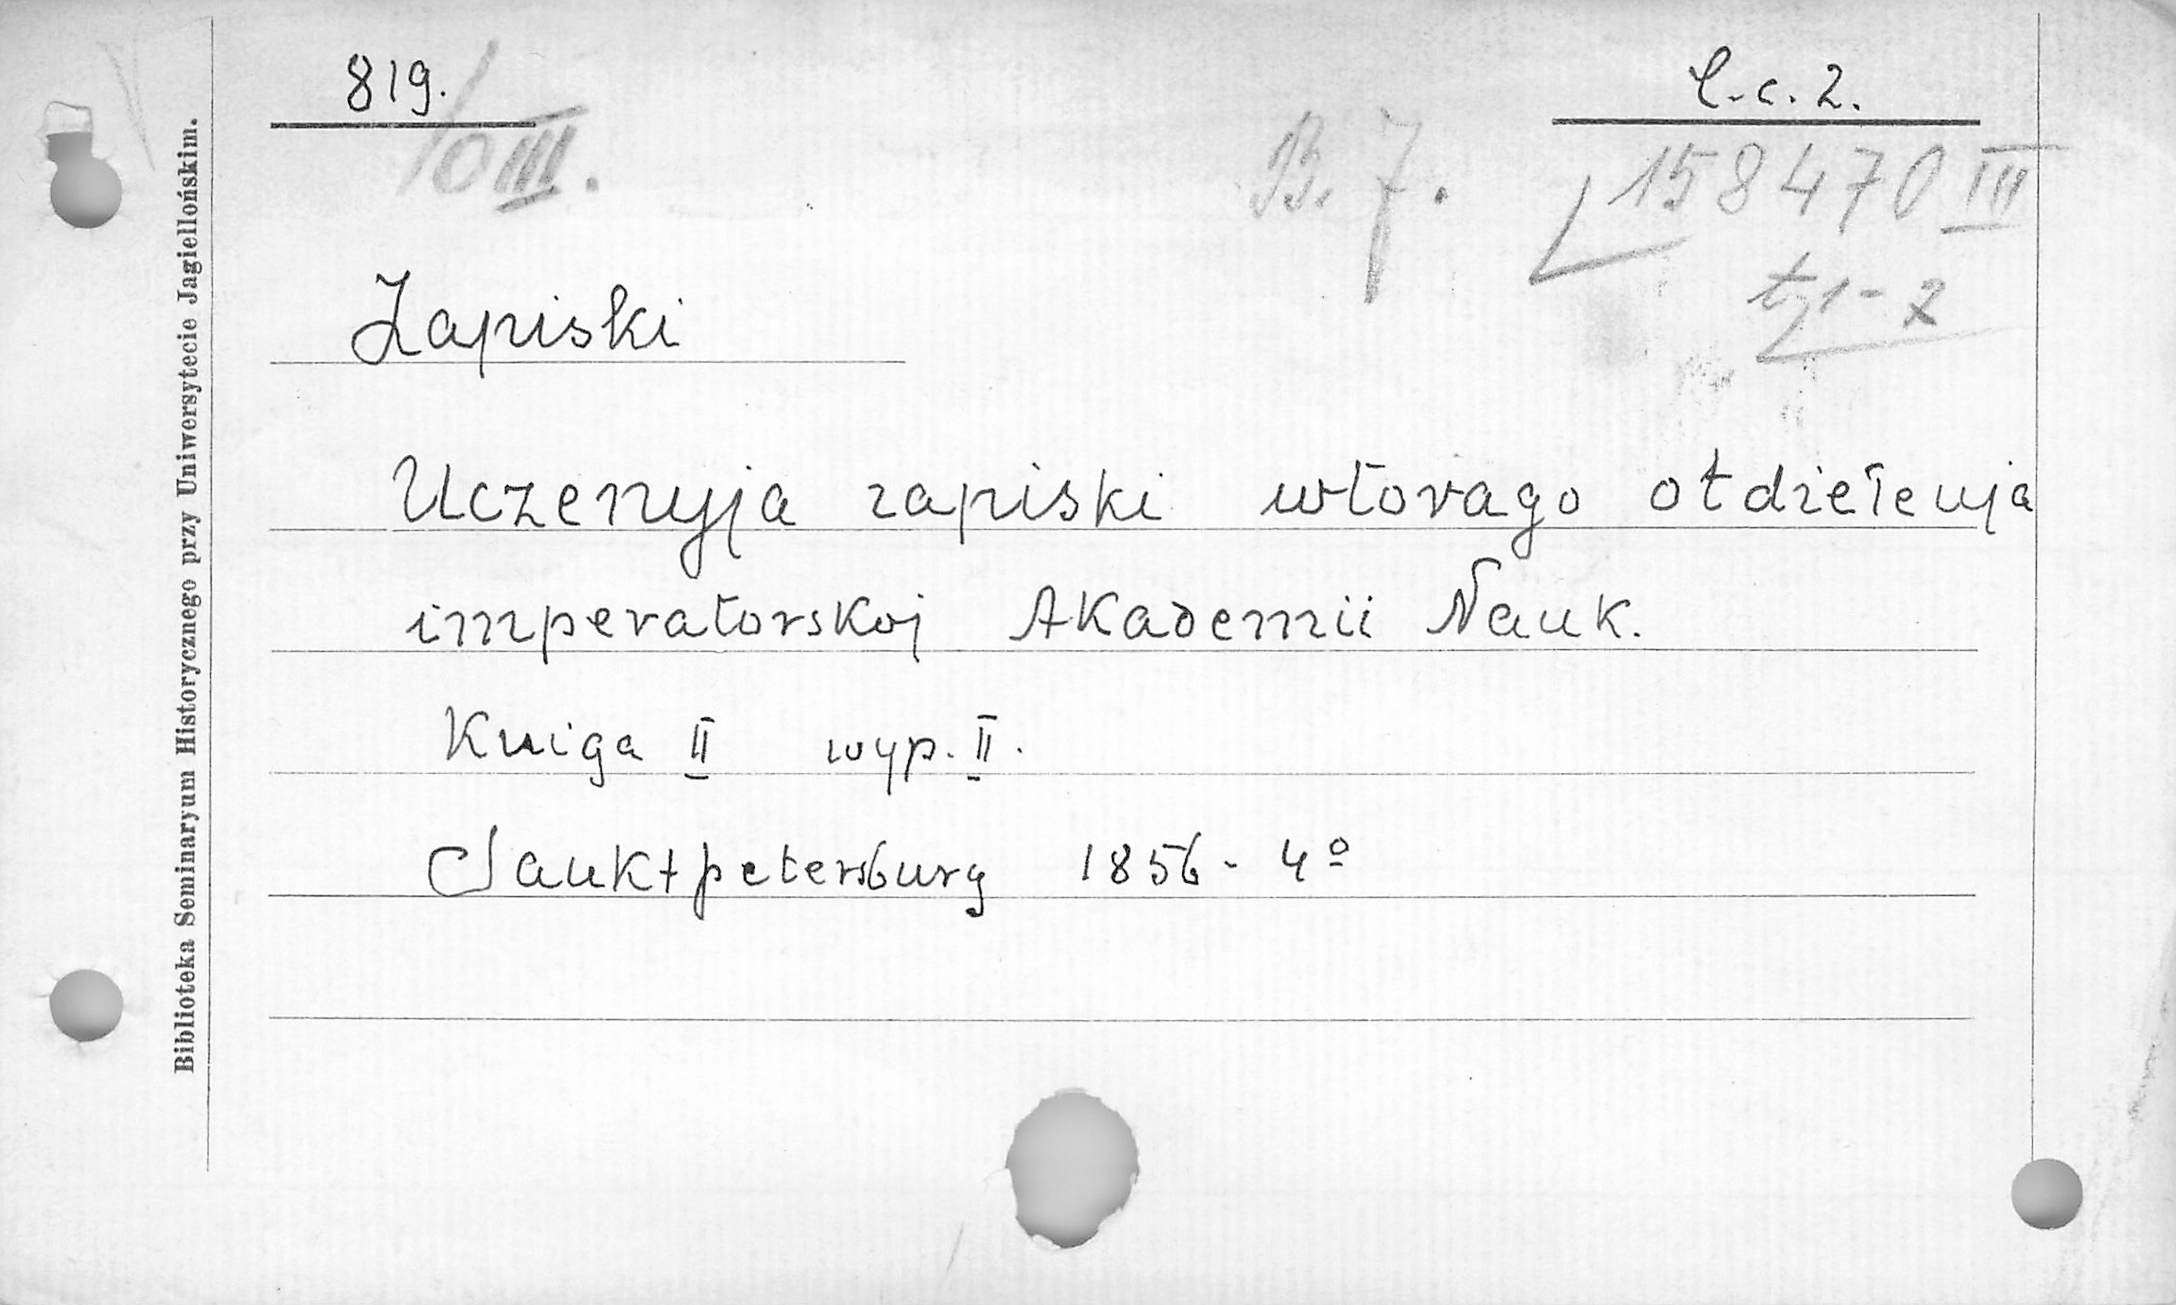 819.
C.c.2.
/0 III.
B. 7.
158470 III
t. 1-2
Zapiski
Uczenyja zapiski wtorago otdiełenja
imperatorskoj Akademii Nauk.
Kniga II wyp. II.
Sanktpetersburg 1856 - 4º
Biblioteka Seminaryum Historycznego przy Uniwersytecie Jagiellońskim.